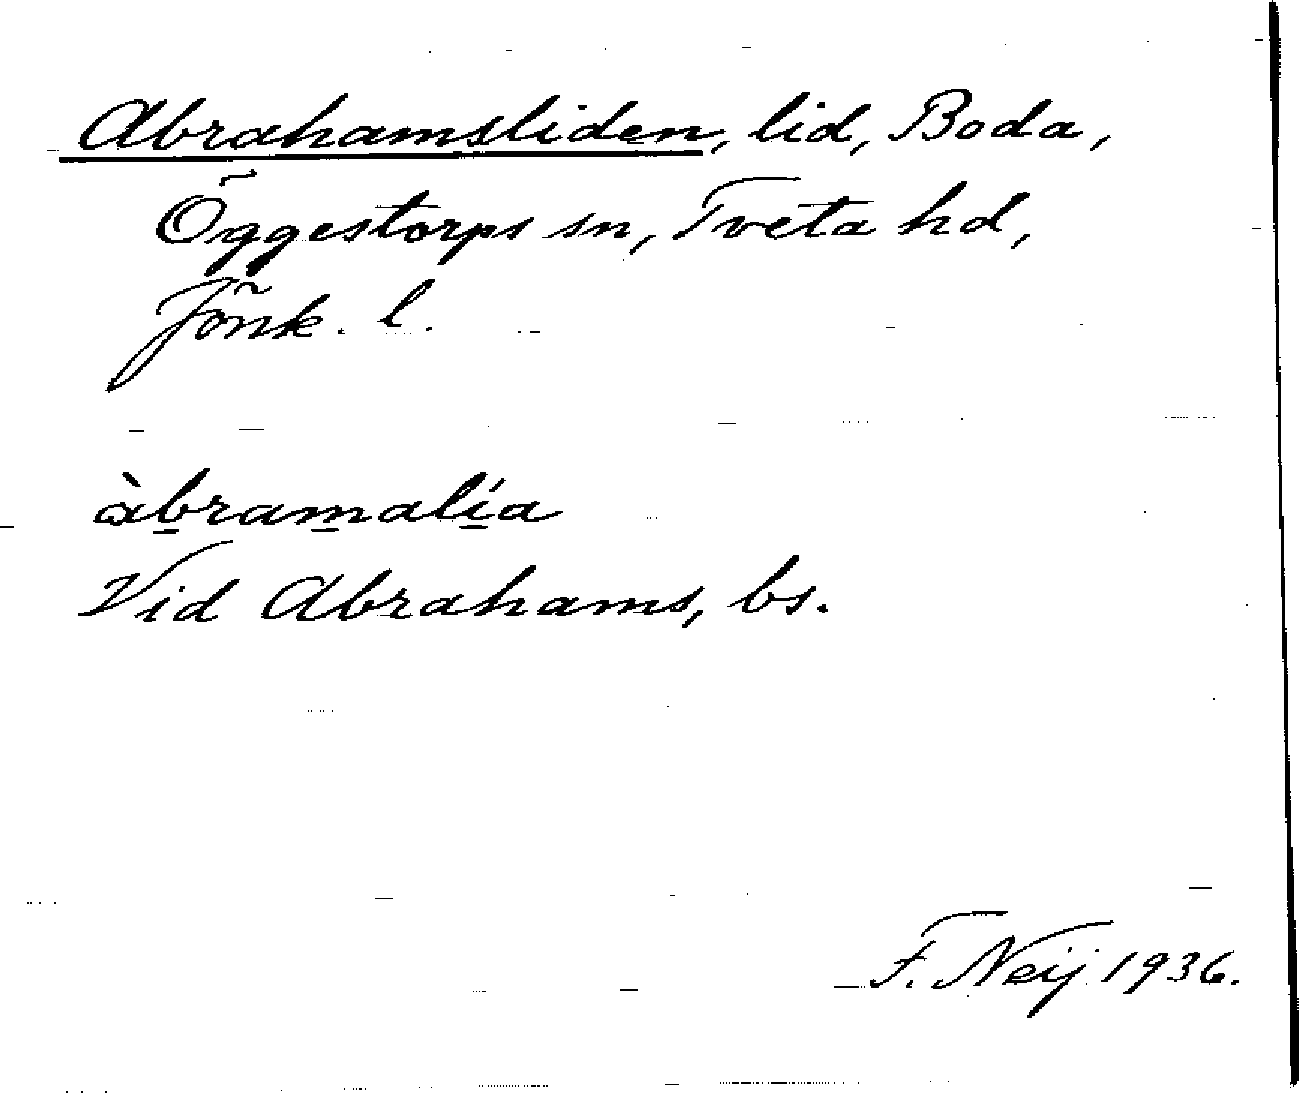 Abrahamsliden, lid, Boda,
Öggestorps sn, Tveta hd,
Jönk. l.
àb̲ram̲alí̲a
Vid Abrahams, bs.
F. Neij 1936.